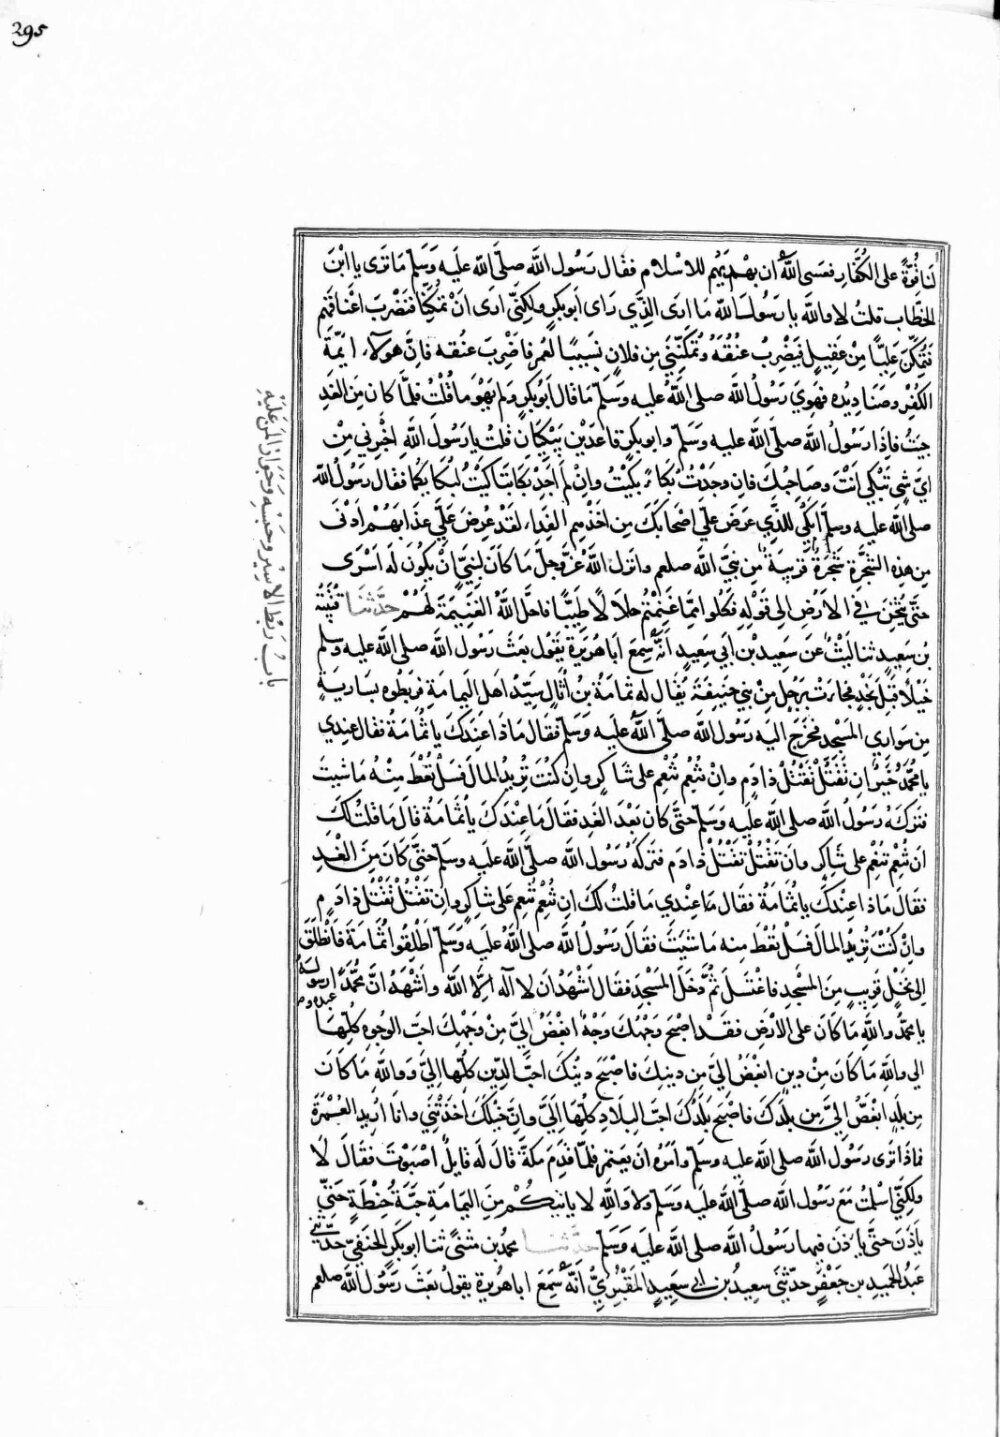 295
لنا قُوَّةً على الكُفَّارِ فعسى اللّٰهُ ان يهديَهُم للاسْلام فقال رَسُول اللّٰه صلّى اللّٰه عليه وسَلَّم ما ترى يا ابْنَ
الخطّاب قلتُ لا واللّٰه يا رسُولَ اللّٰه مَا ارَى الذِّي رَاى ابو بكرٍ ولكِنّى ارى انْ تمكّنّا فنضْربَ اعْناقهُم
فتُمكّنَ عَليًّا مِنْ عَقِيلٍ فيَضْرِبُ عنُقهُ وتُمكّنّي مِن فلانٍ نسِيبًا لعُمرَ فاضْرِبَ عنُقه فانَّ هولاء ايمّةُ
الكُفْرِ وصَنادِيدُه فهَوِيَ رَسُولُ اللّٰه صلى اللّٰهُ عليه وسَلّم مَا قال ابُو بكرٍ ولم يَهْوَ ما قُلْتُ فلمّا كان مِن الغَدِ
جيتُ فاذا رَسُولُ اللّٰه صلّى اللّٰه عليه وسَلّم وابو بكرٍ قاعدَيْن يَبْكِيانِ قلتُ يا رَسُولَ اللّٰهِ اخْبِرني مِنْ
ايّ شيٍ تَبْكِي انْتَ وصَاحِبُك فانِ وجَدْتُ بُكاءً بَكَيْتُ وانْ لم اجِدْ بُكاءً تباكيْتُ لبُكايِكُما فقال رَسُولُ اللّٰه
صلى اللّٰه عليه وسلّم ابكي للذّي عَرَضَ عليّ اصْحابُكَ مِن اخْذِهِم الفِداءَ لقد عُرِضَ عليّ عذابُهُم ادْنى
مِن هذِه الشّجَرَةِ شجَرةٍ قريبَةٍ مِن نبيّ اللّٰه صلعم وانزل اللّٰهُ عزّ وجَلّ مَا كانَ لنبيٍّ انْ يكُونَ له اسْرَى
حتّى يُثخِنَ في الارْضِ الى قولِهِ فكلُوا ممّا غنِمْتُم حلالًا طيّبًا فاحَلّ اللّٰهُ الغنيمَة لهُم حدَّثنَا قتَيْبَة
بْن سَعِيدٍ ثنا ليْثٌ عَن سَعِيد بْن ابى سَعِيدٍ انَّهُ سمِعَ ابا هُريْرَةَ يَقُول بعَثَ رَسُولُ اللّٰه صلى اللّٰه عليه وسلم
خَيْلًا قبَل نَجْدٍ فجاءت برَجُلٍ مِنْ بني حَنيفَةَ يُقال له ثمامَةُ بن اُثالٍ سيّدُ اهلِ اليمامَةِ فربَطُوه بسَاريَةٍ
مِن سَوَاري المَسْجد فخرَجَ اليه رَسُولُ اللّٰه صلّى اللّٰه عليه وَسَلّم فقال ماذا عِندَكَ يا ثُمامَةُ فقال عِندِي
يا مُحمّدُ خَيْرٌ ان تقْتُلْ تقْتُلْ ذا دَمٍ وانْ تُنْعِمْ تُنْعِم على شاكِرٍ وان كُنتَ تُريدُ المالَ فسَلْ تُعْطَ مِنْهُ مَا شيتَ
فترَكهُ رَسُولُ اللّٰه صلى اللّٰه عليه وَسَلّم حتّى كان بَعْدَ الغَدِ فقال ما عِنْدَكَ يا ثُمامَةُ قال مَا قلتُ لكَ
ان تُنْعِمْ تنعِمْ على شَاكِرٍ وان تقْتُلْ تقْتُلْ ذا دَمٍ فترَكهُ رَسُولُ اللّٰه صلّى اللّٰه عليه وسلّم حتّى كَانَ مِنَ الغَدِ
فقالَ ماذا عِنْدَكَ يا ثُمَامَةُ فقال مَا عِنْدِي مَا قلتُ لكَ ان تُنعِمْ تُنعِم على شاكِرٍ وان تَقْتُلْ تَقْتُلْ ذا دَمٍ
وانْ كُنْتَ تُريدُ المالَ فسَلْ تُعْطَ منه ما شيتَ فقال رَسُولُ اللّٰه صلّى اللّٰهُ عليه وَسَلّم اطلِقُوا ثُمامَةَ فانْطَلَقَ
الى نَخْلٍ قريبٍ مِنَ المَسْجدِ فاغْتسَل ثمّ دَخَل المسْجِدَ فقال اشْهَدُ ان لا اله الّا اللّٰه واشْهَدُ انّ محُمّدًا رسوله
عبده و
يا محمّدُ واللّٰهِ مَا كَانَ على الارْض فقد اصْبَحَ وجْهُكَ وَجْهٌ ابْغَضُ اليَّ مِنْ وَجْهِكَ احَبَّ الوجُوهِ كلّهَا
الي واللّٰهِ مَا كَانَ مِنْ دينٍ ابغَضُ اليَّ مِن دينِكَ فاصْبَحَ دينُكَ احبَّ الدِّينِ كُلّها اليَّ وَاللّٰهِ مَا كانَ
مِن بلَدٍ ابْغَضُ اليّ مِن بلَدِكَ فاصْبحَ بلَدُكَ احَبَّ البلَادِ كلِّهَا اليَّ وانّ خَيْلَكَ اخَذَتْني وانَا اُريدُ العُمْرَةَ
فماذا ترى رَسُولُ اللّٰه صلّى اللّٰه عليه وسلّم وامَرُه ان يعتمِر فلمّا قدِمَ مكّةَ قال له قايلٌ اصَبَوْتَ فقالَ لا
ولكِنّي اسْلمتُ مَعَ رَسُول اللّٰه صلّى اللّٰه عليه وَسَلم ولا واللّٰهِ لا ياتيكُمْ مِنَ اليَمَامَةِ حَبّةُ حِنْطَةٍ حَتّي
ياذَنَ حتّى ياذن فيهَا رَسُولُ اللّٰه صلى اللّٰه عليه وَسَلّم حدّثنا محمدُ بن مثنىّ ثنا ابو بكرٍ الحنَفِي حدّثني
عَبْدُ الحميدِ بن جَعْفَرٍ حدّثني سعِيدُ بن ابى سعِيدٍ المَقْبُرِيُّ انَّه سَمعَ ابا هُريرةَ يقول بعَثَ رسُول اللّٰه صلعم
بابُ رَبْطِ الاسِيْرِ وحَبْسِهِ وَجَوَازِ المَنِّ عَلَيْهِ